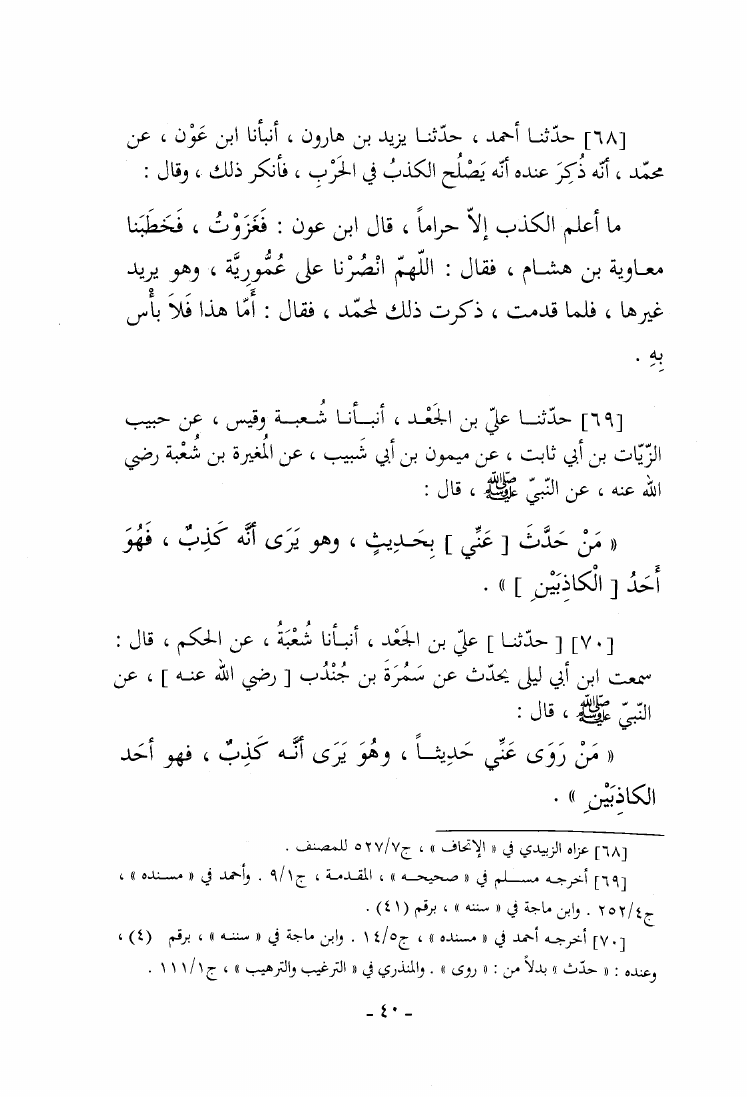 [٦٨] حدّثنا أحمد ، حدّثنا يزيد بن هارون ، أنبأنا ابن عَوْن ، عن
محمّد ، أنّه ذُكِرَ عنده أنّه يَصْلُح الكذبُ في الحَرْبِ ، فأنكر ذلك ، وقال :
ما أعلم الكذب إلاّ حراماً ، قال ابن عون : فَغَزَوْتُ ، فَخَطَبَنا
معاوية بن هشام ، فقال : اللّهمّ انْصُرْنا على عُمُّورِيَّة ، وهو يريد
غيرها ، فلما قدمت ، ذكرت ذلك لمحمّد ، فقال : أَمّا هذا فَلاَ بأْس
بِهِ .
[٦٩] حدّثنا عليّ بن الجَعْد ، أنبأنا شُعبة وقيس ، عن حبيب
الزّيّات بن أبي ثابت ، عن ميمون بن أبي شَبيب ، عن المُغيرة بن شُعْبة رضي
الله عنه ، عن النّبيّ ﷺ ، قال :
« مَنْ حَدَّثَ [ عَنِّي ] بِحَدِيثٍ ، وهو يَرَى أنَّه كَذِبٌ ، فَهُوَ
أَحَدُ [ الْكاذِبَيْنِ ] » .
[٧٠] [ حدّثنا ] عليّ بن الجَعْد ، أنبأنا شُعْبَةُ ، عن الحكم ، قال :
سمعت ابن أبي ليلى يحدّث عن سَمُرَةَ بن جُنْدُب [ رضي الله عنه ] ، عن
النّبيّ ﷺ ، قال :
« مَنْ رَوَى عَنِّي حَديثاً ، وهُوَ يَرَى أنَّه كَذِبٌ ، فهو أحَد
الكاذِبَيْنِ » .
[٦٨] عزاه الزبيدي في « الإتحاف » ، ج٥٢٧/٧ للمصنف .
[٦٩] أخرجه مسلم في « صحيحه » ، المقدمة ، ج٩/١ . وأحمد في « مسنده » ،
ج٢٥٢/٤ . وابن ماجة في « سننه » ، برقم (٤١) .
[٧٠] أخرجه أحمد في « مسنده » ، ج١٤/٥ . وابن ماجة في « سننه » ، برقم (٤) ،
وعنده : « حدّث » بدلاً من : « روى » . والمنذري في « الترغيب والترهيب » ، ج١١١/١ .
- ٤٠ -